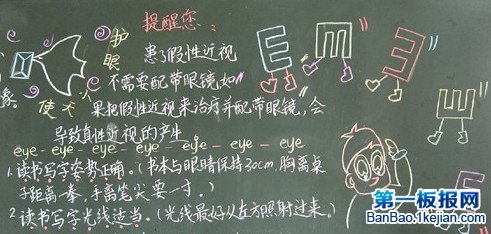 提醒您:
护眼
使犬
象。
患了假性近视
不需要配带眼镜,如
果把假性近视来治疗并配带眼镜,会
导致真性近视的产生。
eye - eye - eye - eye - eye - eye - eye
1.读书写字姿势正确。(书本与眼睛保持30cm,胸离桌
子距离一拳,手离笔尖要一寸。)
2.读书写字光线适当。(光线最好从左方照射过来。)
E
E
E
E
E
第一板报网
BanBao.1kejian.com